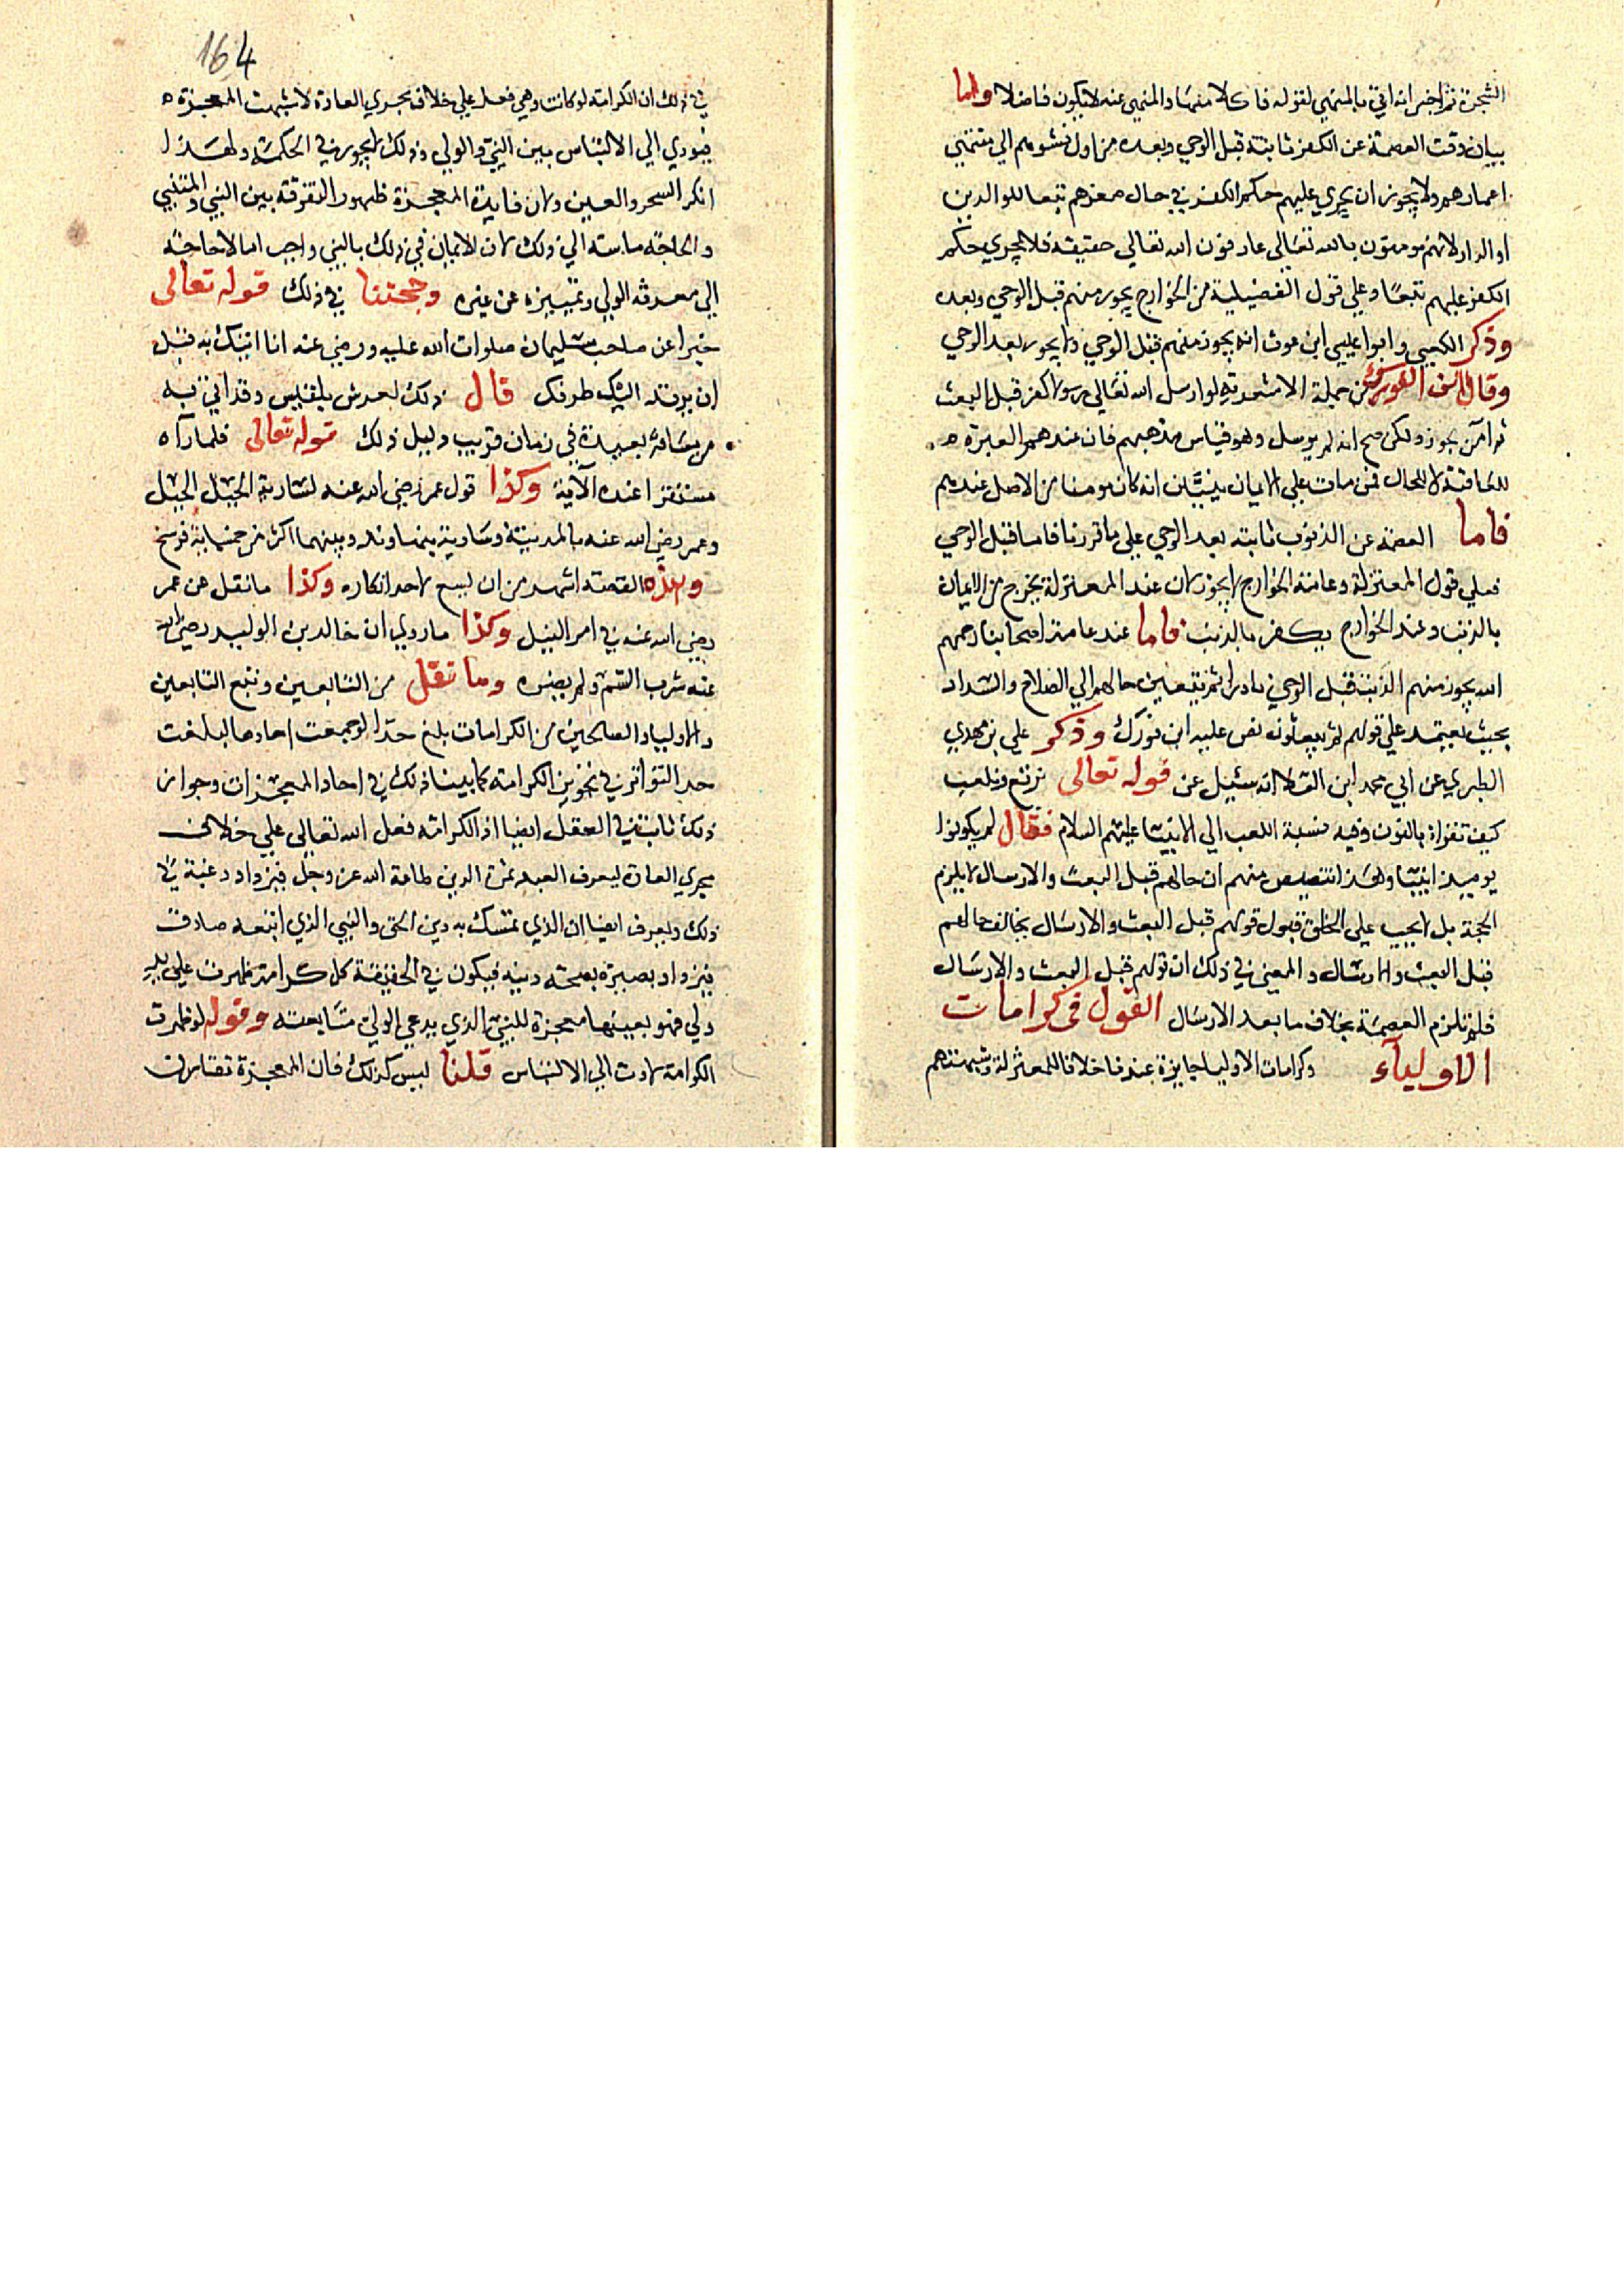 الشجرة ثم اخبر انه اتى بالمنهي لقوله فاكلا منها والمنهي عنه لا يكون فاضلا واما
بيان وقت العصمة عن الكفر ثابتة قبل الوحي وبعده من اول نشوهم الي منتهي
اعمارهم ولا يجوز ان يجري عليهم حكم الكفر في حال صغرهم تبعا للوالدين
او الدار لانهم مومنون بالله تعالى عارفون الله تعالي حقيقة فلا يجري حكم
الكفر عليهم تبعا وعلي قول الفضيلية من الخوارج يجوز منهم قبل الوحي وبعده
وذكر الكعبي وابوا عيسي ابن عوث انه يجوز منهم قبل الوحي ولا يجوز بعد الوحي
وقال ابن الفورك من جملة الاشعرية لو ارسل الله تعالي رسولا كفر قبل البعث
ثم امن يجوز ولكن صح انه لم يرسل وهو قياس مذهبهم فان عندهم العبرة
للعاقبة لا للحال فمن مات علي الايمان يتبين انه كان مومنا من الاصل عندهم
فاما العصمة عن الذنوب ثابتة بعد الوحي علي ما قررنا فاما قبل الوحي
فعلي قول المعتزلة وعامة الخوارج لا يجوز لان عند المعتزلة يخرج من الايمان
بالذنب وعند الخوارج يكفر بالذنب فاما عند عامة اصحابنا رحمهم
الله يجوز منهم الذنب قبل الوحي نادرا ثم يتعين حالهم الي الصلاح والسداد
بحيث يعتمد علي قولهم ثم يبعثون نص عليه ابن فورك وذكر علي بن مهدي
الطبري عن ابي محمد ابن القطا انه سئيل عن قوله تعالى نرتع ونلعب
كيف تقراه بالنون وفيه نسبة اللعب الي الانبيا عليهم السلام فقال لم يكونوا
يوميذ انبيا وهذا تنصيص منهم ان حالهم قبل البعث والارسال لا يلزم
الحجة بل لا يجب علي الخلق قبول قولهم قبل البعث والارسال يخالف حالهم
قبل البعث والارسال والمعني في ذلك ان قولهم قبل البعث والارسال
فلم تلزم العصمة بخلاف ما بعد الارسال القول في كرامات
الاولياء وكرامات الاوليا جايزة عندنا خلافا للمعتزلة وشبهتهم
164
في ذلك ان الكرامة لو كانت وهي فعل علي خلاف مجري العادة لاشبهت المعجزة
فيودي الي الالتباس بين النبي والولي وذلك لا يجوز في الحكمة ولهذا
انكر السحر والعين ولان فايدة المعجزة ظهور التفرقة بين النبي والمتنبي
والحاجة ماسة الي ذلك لان الايمان في ذلك بالنبي واجب اما لا حاجة
الي معرفة الولي وتمييزه عن غيره وحجتنا في ذلك قوله تعالى
خبرا عن صاحب سليمان صلوات الله عليه ورضي عنه انا اتيك به قبل
ان يرتد اليك طرفك قال ذلك لعرش بلقيس وقد اتي به
من مسافة بعيدة في زمان قريب دليل ذلك قوله تعالى فلما رآه
مستقرا عنده الآية وكذا قول عمر رضي الله عنه لسارية الجبل الجبل
وعمر رضي الله عنه بالمدينة وسارية بنهاوند وبينهما اكثر من خمسماية فرسخ
وهذه القصة اشهر من ان يسع لاحد انكاره وكذا ما نقل عن عمر
رضي الله عنه في امر النيل وكذا ما روي ان خالد بن الوليد رضي الله
عنه شرب السم ولم يضره وما نقل من التابعين وتبع التابعين
والاوليا والصالحين من الكرامات بلغ حدا لو جمعت احادها لبلغت
حد التواتر في تجويز الكرامة كما بينا ذلك في احاد المعجزات وجواز
ذلك ثابت في العقل ايضا اذ الكرامة فعل الله تعالي علي خلاف
مجري العادة ليعرف العبد ثمرة الدين طاعة الله عز وجل فيزداد رغبة في
ذلك وليعرف ايضا ان الذي تمسك به دين الحق والنبي الذي اتبعه صادق
فيزداد بصيرة بصحة دينه فيكون في الحقيقة كل كرامة ظهرت علي يد
ولي فهو بعينها معجزة للنبي الذي يدعي الولي متابعته وقوله لو ظهرت
الكرامة لادت الي الالتباس قلنا ليس كذلك فان المعجزة تقارن